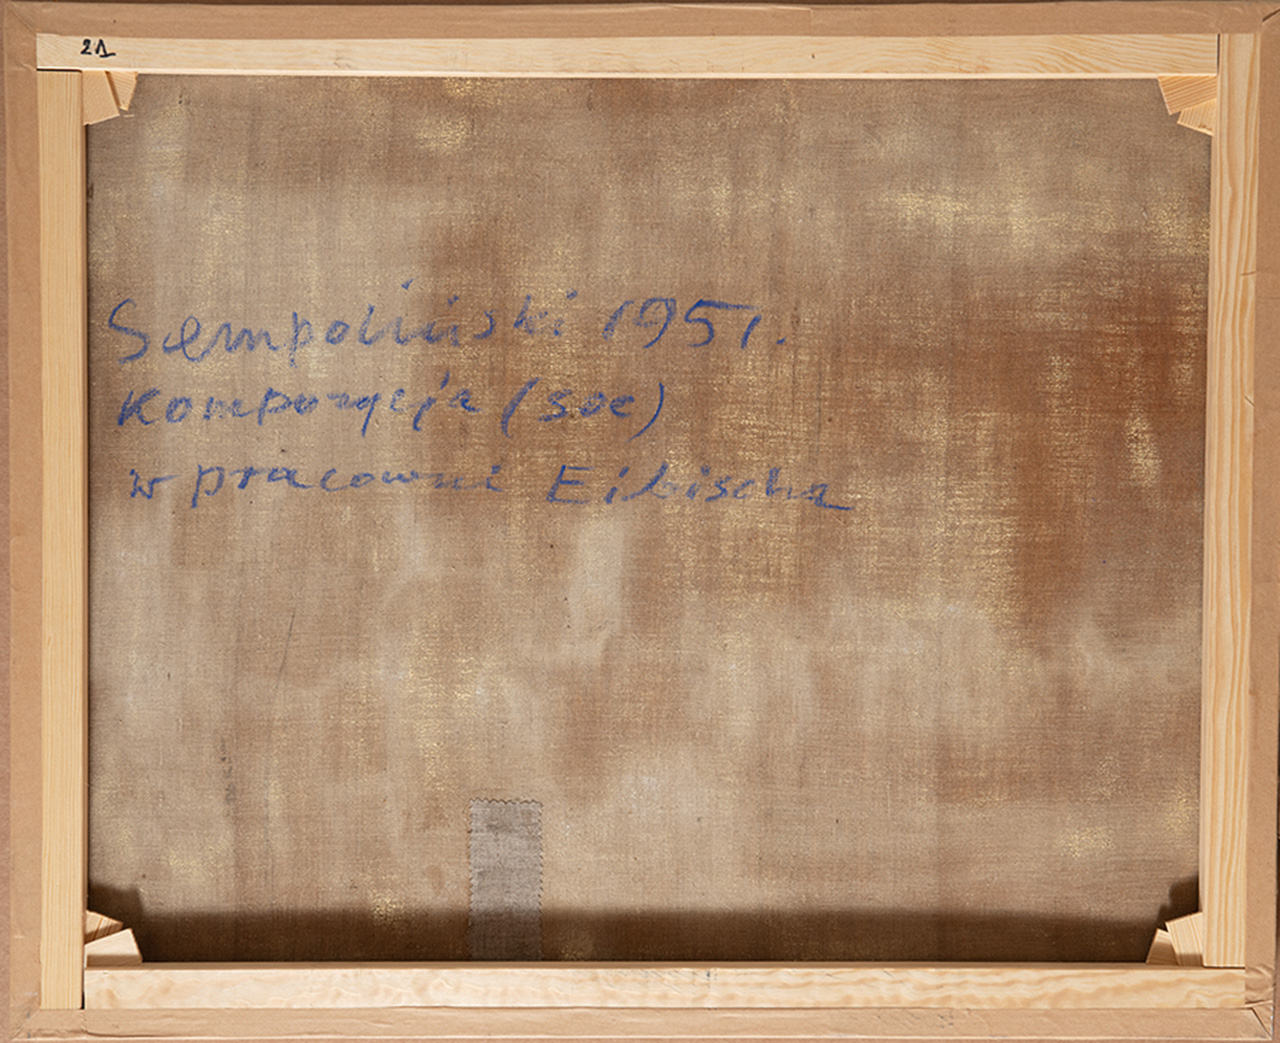 21
Sempoliński 1951.
Kompozycja (soc)
w pracowni Eibischa